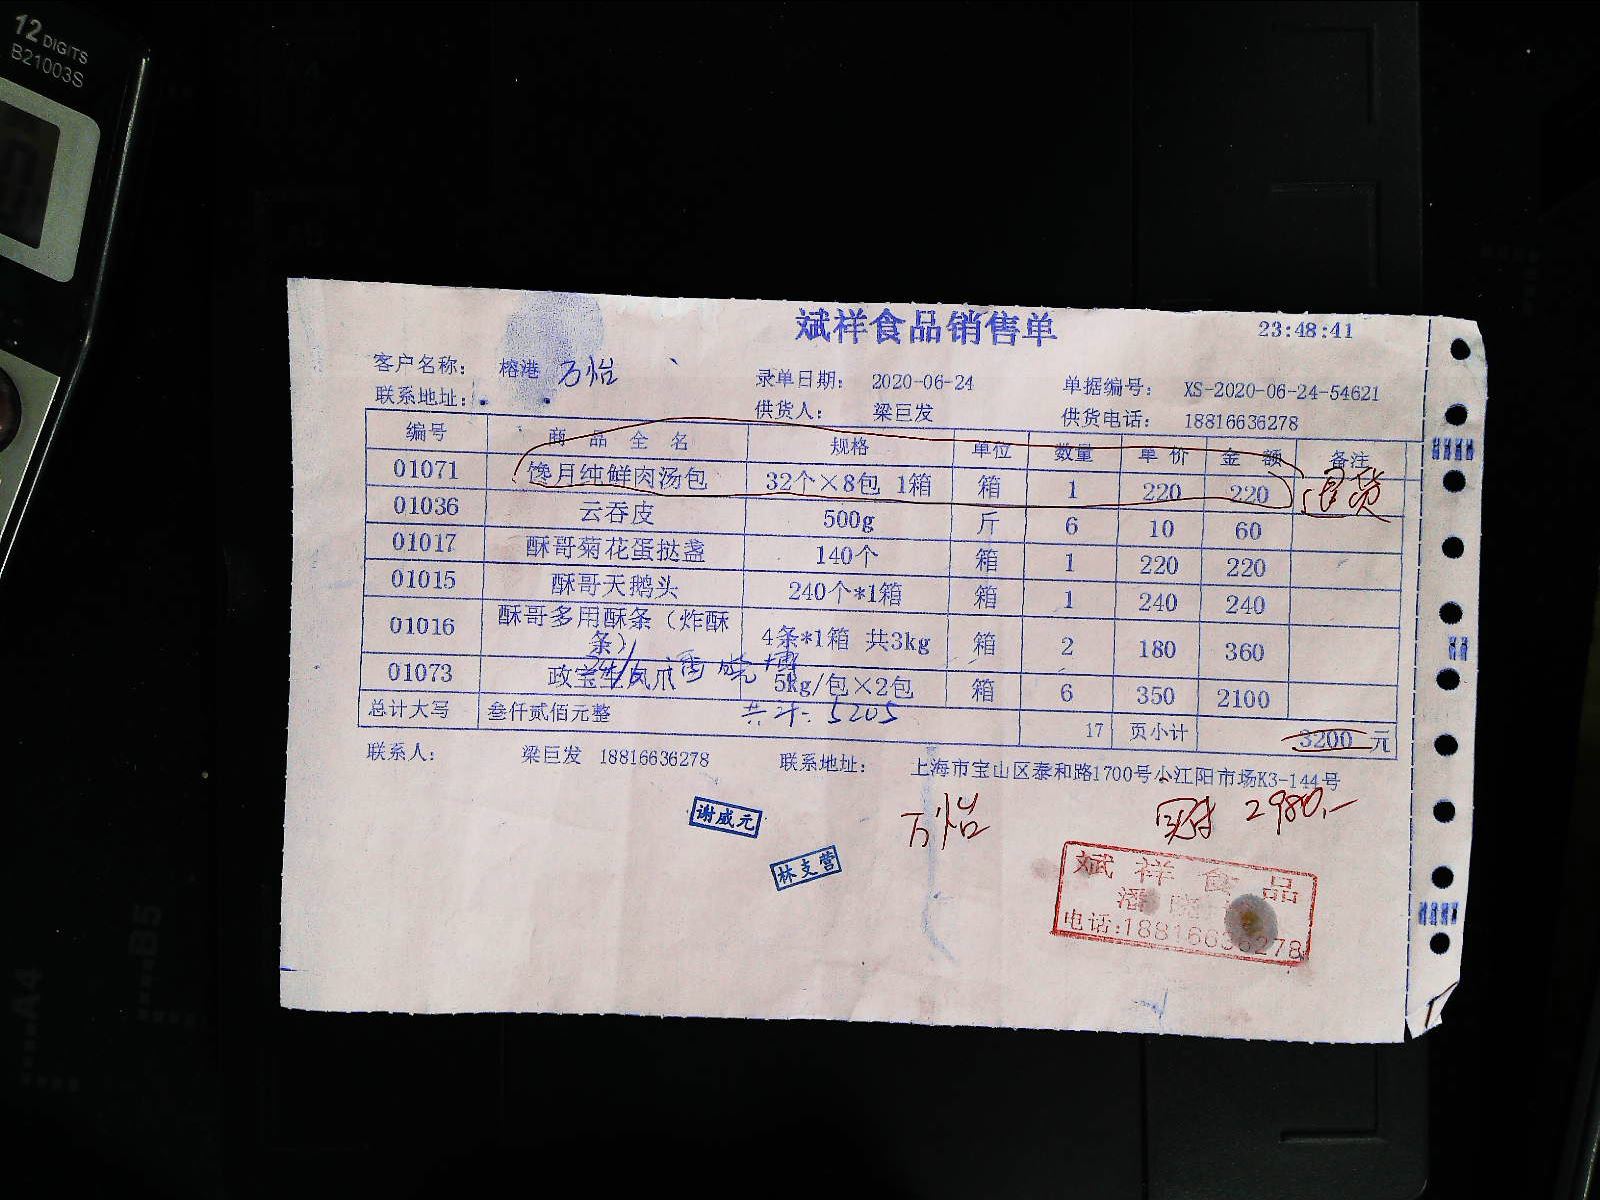 12 DIGITS
B21003S
斌祥食品销售单 23:48:41
客户名称: 榕港 万怡
录单日期: 2020-06-24 单据编号: XS-2020-06-24-54621
联系地址: 供货人: 梁巨发 供货电话: 18816636278
编号 商品全名 规格 单位 数量 单价 金额 备注
01071 馋月纯鲜肉汤包 32个×8包 1箱 箱 1 220 220 退货
01036 云吞皮 500g 斤 6 10 60
01017 酥哥菊花蛋挞盏 140个 箱 1 220 220
01015 酥哥天鹅头 240个*1箱 箱 1 240 240
01016 酥哥多用酥条（炸酥条） 4条*1箱 共3kg 箱 2 180 360
01073 政宝生凤爪 5kg/包×2包 箱 6 350 2100
总计大写 叁仟贰佰元整 共计: 5205 17 页小计 3200 元
联系人: 梁巨发 18816636278 联系地址: 上海市宝山区泰和路1700号小江阳市场K3-144号
谢威元
万怡 实付 2980.-
林支营
斌祥食品
潘晓
电话:18816636278
B5
A4